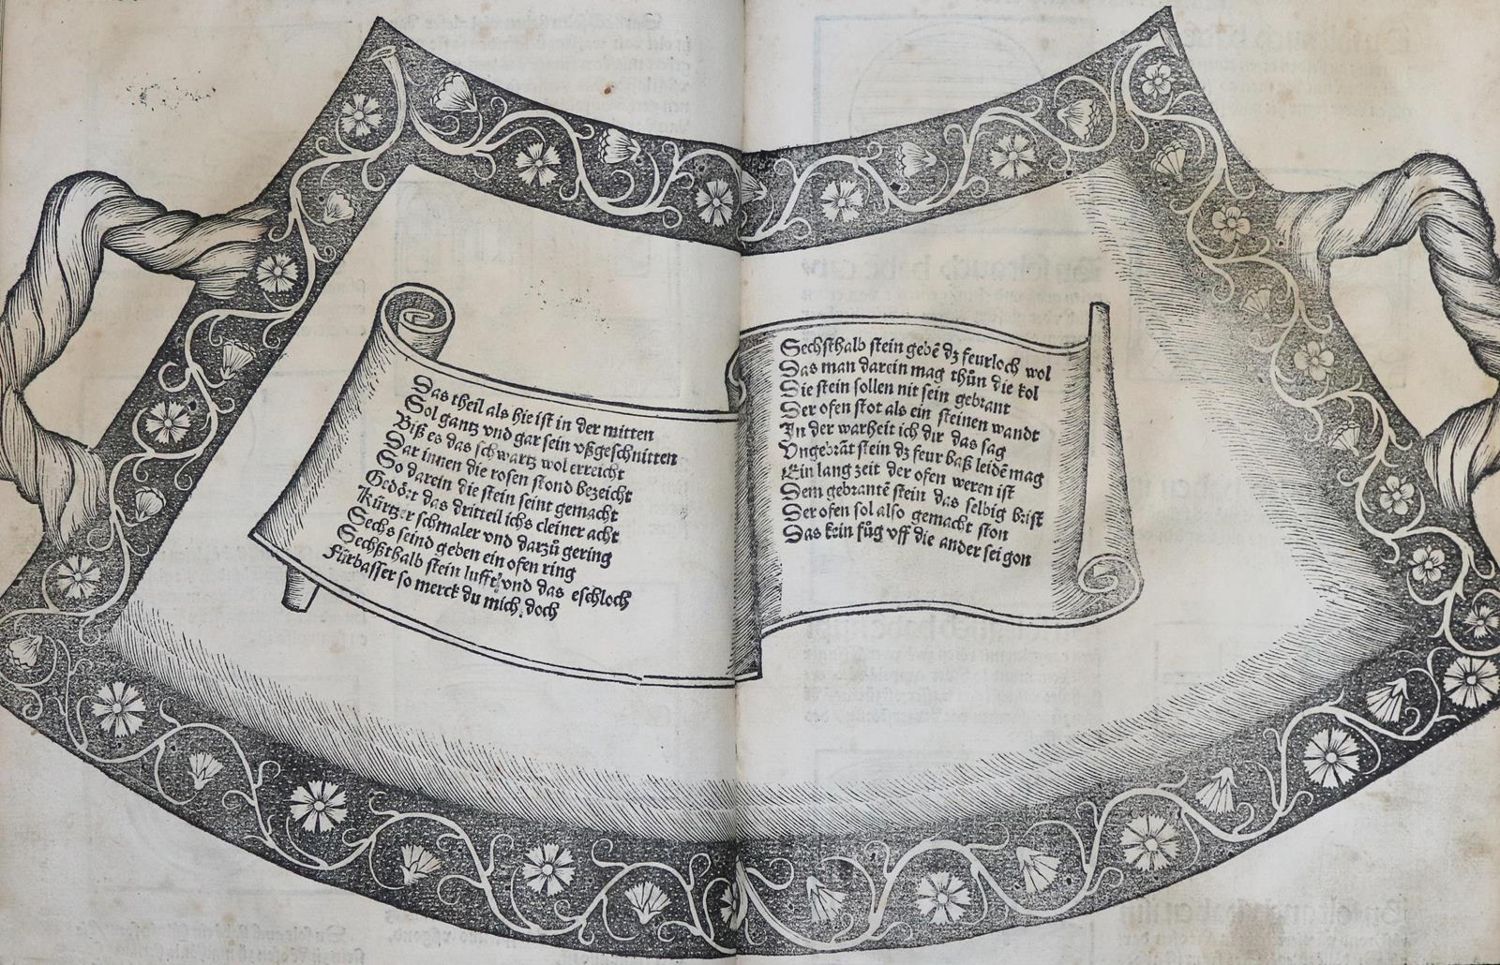 Das theil als hie ist in der mitten
Sol gantz vnd gar sein vßgeschnitten
Biß es das schwartz wol erreicht
Dar innen die rosen stond bezeicht
So darein die stein seint gemacht
Gehört das dritteil ichs cleiner acht
Kürtzer schmaler vnd darzů gering
Sechs seind geben ein ofen ring
Sechßthalb stein lufft vnd das eschloch
Fürbasser so merck du mich doch
Sechsthalb stein gebē dz feurloch wol
Das man darein mag thůn die kol
Die stein sollen nit sein gebrant
Der ofen stot als ein steinen wandt
In der warheit ich dir das sag
Vngebrāt stein dz feur baß leidē mag
Ein lang zeit der ofen weren ist
Dem gebrantē stein das selbig brist
Der ofen sol also gemacht ston
Das kein fůg vff die ander sei gon